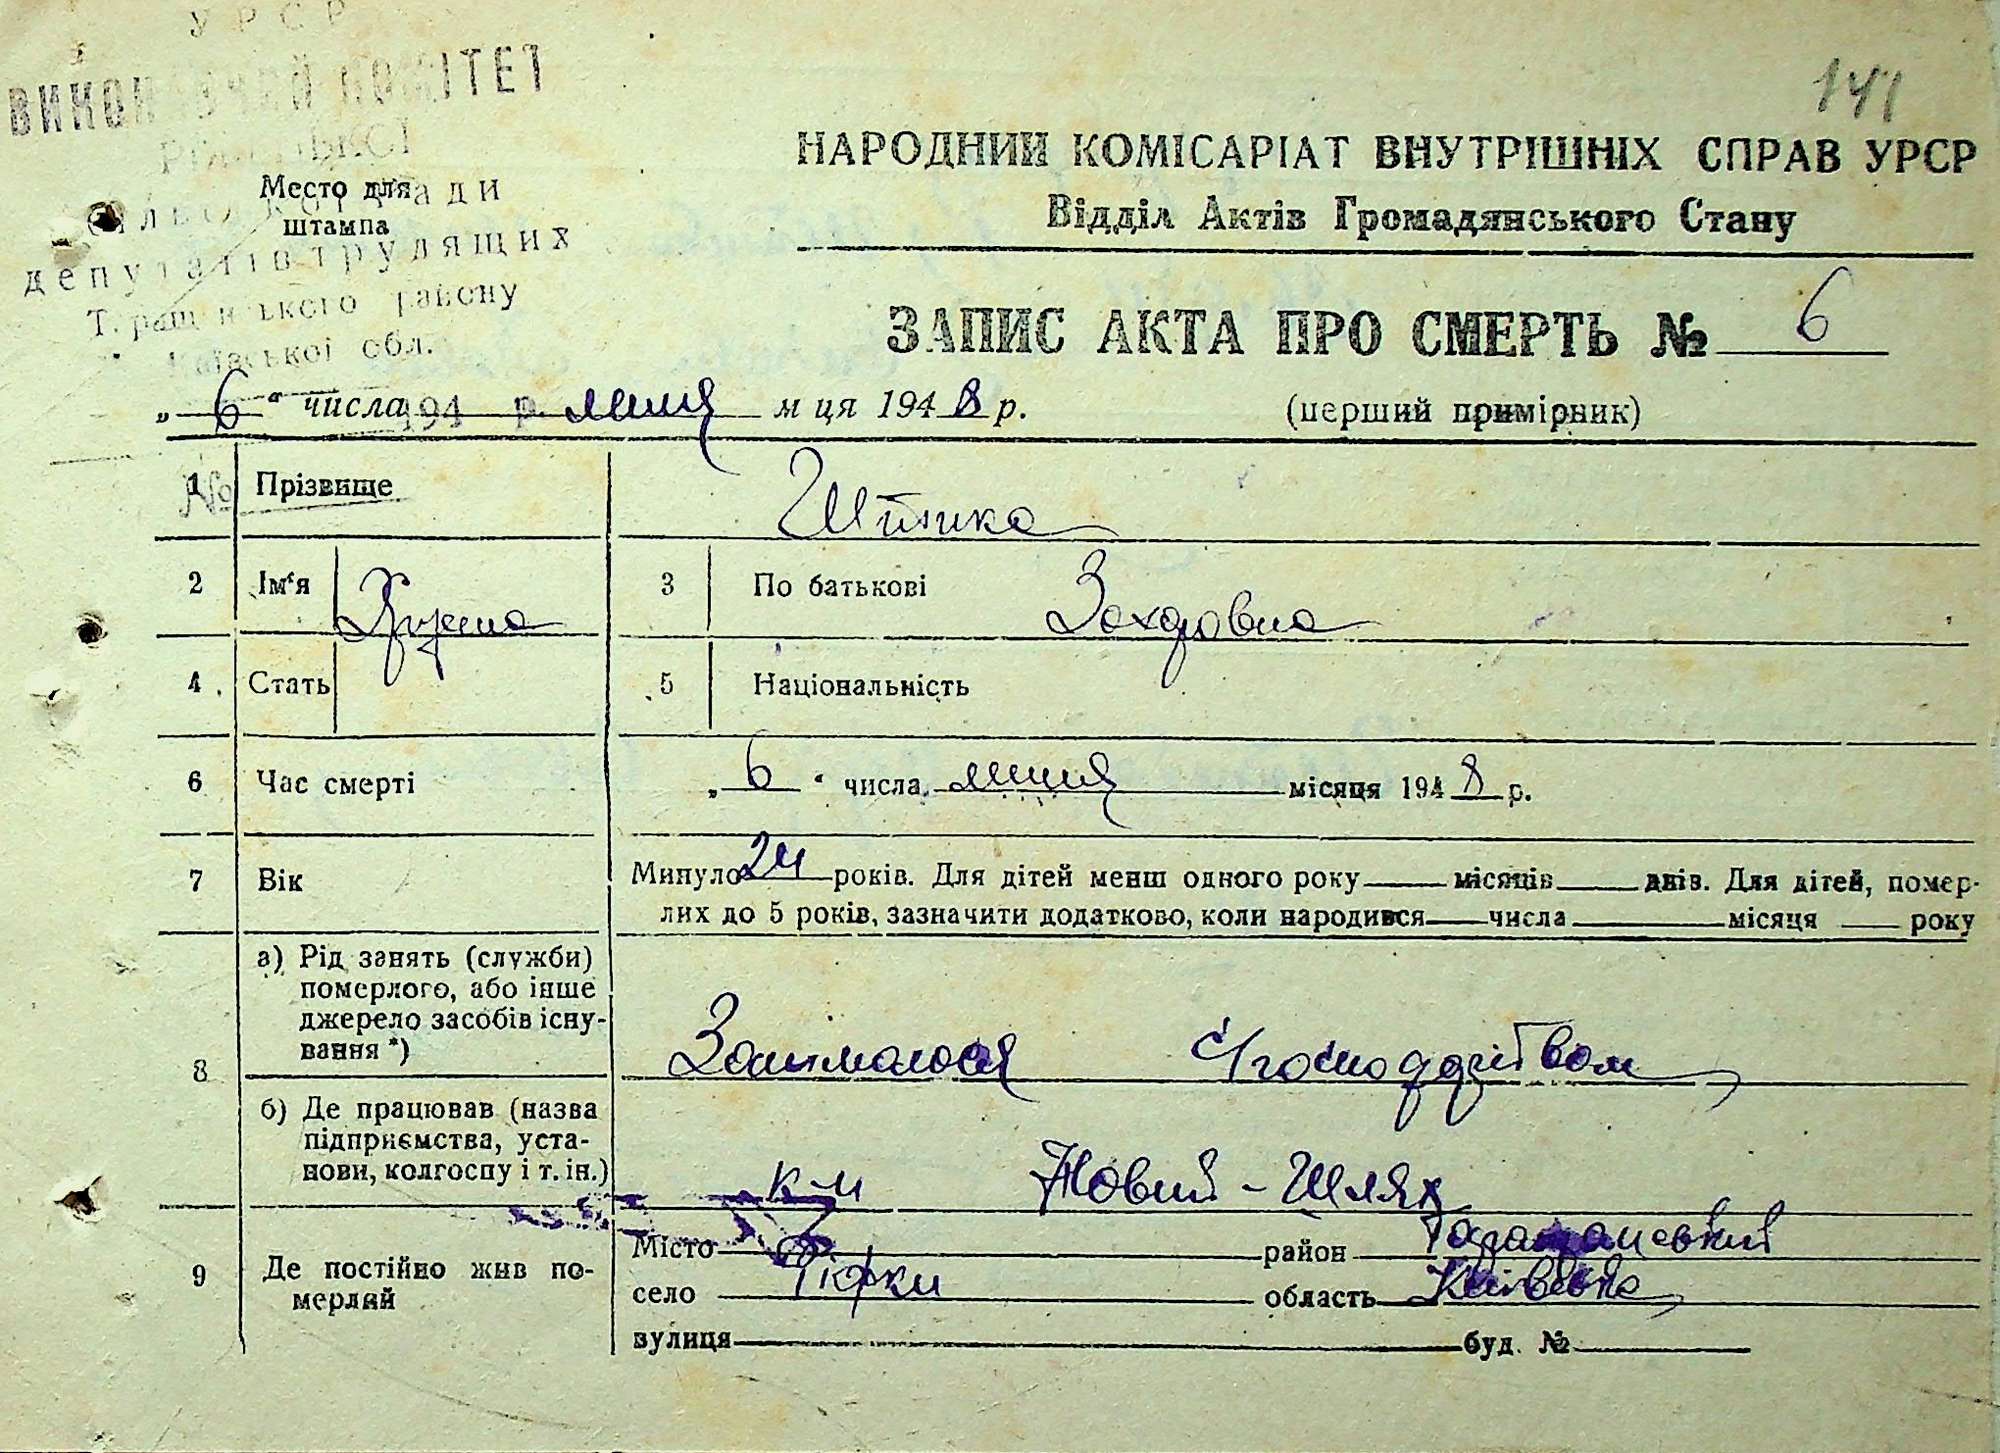 УРСР
ВИКОНАВЧИЙ КОМІТЕТ
сільської ради
депутатів трудящих
Таращанського району
Київської обл.
194 р.
№
Место для
штампа
141
НАРОДНИЙ КОМІСАРІАТ ВНУТРІШНІХ СПРАВ УРСР
Відділ Актів Громадянського Стану
ЗАПИС АКТА ПРО СМЕРТЬ № 6
„ 6 “ числа липня м ця 1948 р.
(перший примірник)
1 Прізвище
2 Ім‘я
3 По батькові Захаровна
4 Стать
5 Національність
6 Час смерті „ 6 “ числа липня місяця 1948 р.
7 Вік Минуло 24 років. Для дітей менш одного року місяців днів. Для дітей, помер-
лих до 5 років, зазначити додатково, коли народився числа місяця року
8 а) Рід занять (служби)
померлого, або інше
джерело засобів існу-
вання *)
Занималася
б) Де працював (назва
підприємства, уста-
нови, колгоспу і т. ін.)
к-п Новий-Шлях
9 Де постійно жив по-
мерлий
Місто район
село Ріжки область Київська
вулиця буд. №